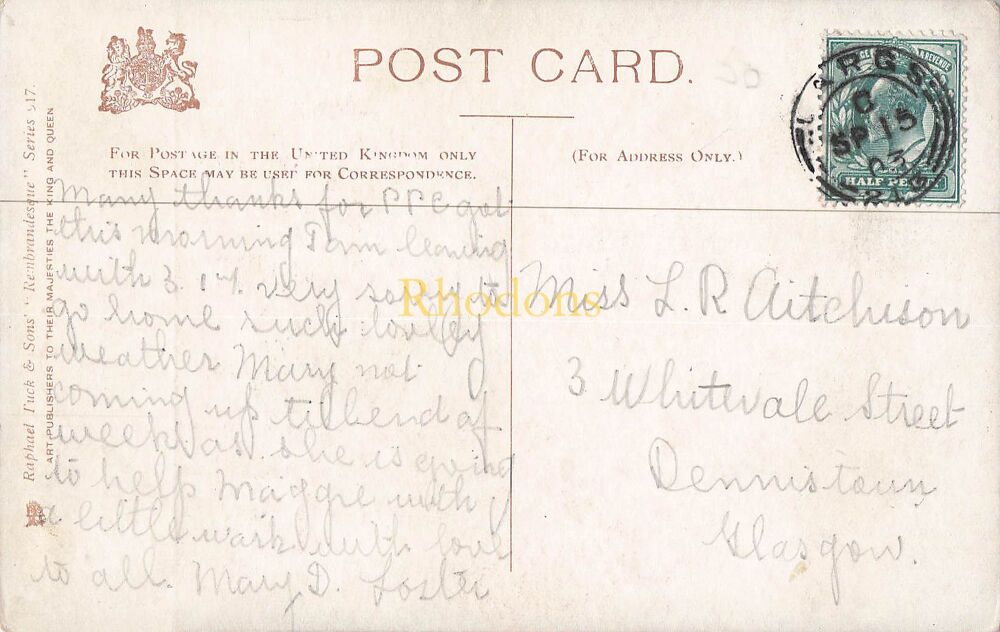 POST CARD.
FOR POSTAGE IN THE UNITED KINGDOM ONLY
THIS SPACE MAY BE USED FOR CORRESPONDENCE.
(FOR ADDRESS ONLY.)
LARGS
C
SP 15
03
HALF PENNY
Raphael Tuck & Sons' "Rembrandesque" Series 517.
ART PUBLISHERS TO THEIR MAJESTIES THE KING AND QUEEN
Many thanks for PPC got
this morning I am leaving
with 3. very sorry to
go home such lovely
weather Mary not
coming up till end of
week as she is going
to help Maggie with
a little work with love
to all. Mary D. Foster
Miss L. R Aitchison
3 Whitevale Street
Dennistoun
Glasgow.
Rhodons